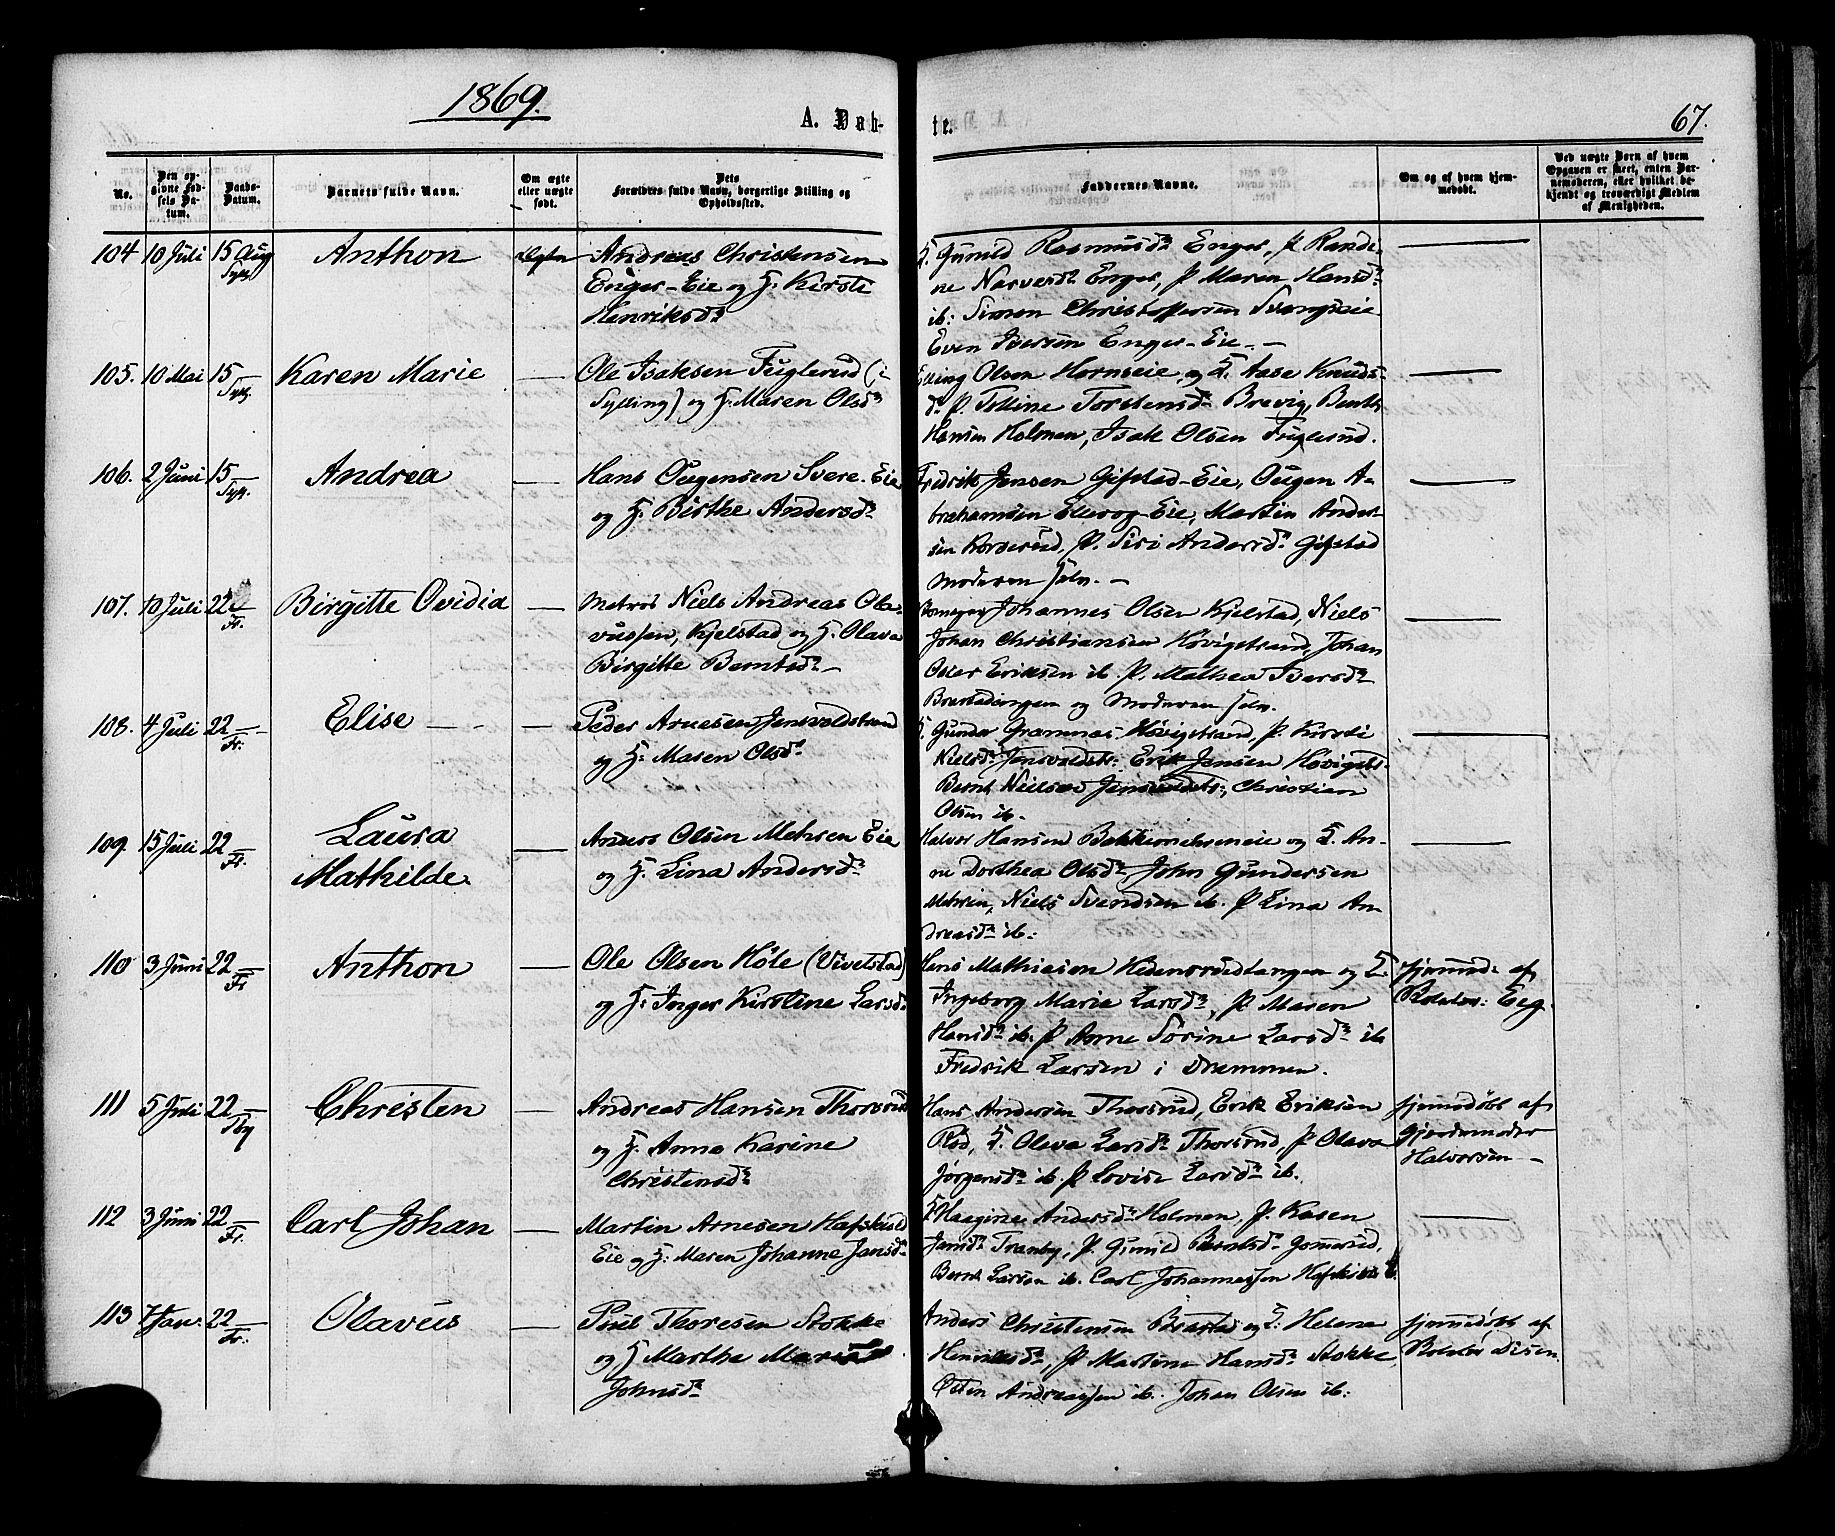 1869.
A. Dåb-
te.
67.
No.
Den opgivne Fødsels Datum.
Daabs-Datum.
Barnets fulde Navn.
Om ægte eller uægte født.
Dets Forældres fulde Navn, borgerlige Stilling og Opholdssted.
Faddernes Navne.
Om og af hvem hjemmedøbt.
Ved uægte Børn af hvem Opgaven er skeet, enten Barnemoderen, eller hvilket bekjendt og troværdigt Medlem af Menigheden.
104 10 Juli 15 Aug Sylt. Anthon Ægten
Andreas Christensen
Enger-Eie og H. Kirsti
Henriksdr
K. Gunild Rasmusdr Enger, P. Rande-
ne Narvesdr Enger, P. Maren Hansdr
ib: Simon Christoffersen Svangseie
Even Iversen Enger-Eie. -
105. 10 Mai 15 Sylt. Karen Marie —
Ole Isaksen Fuglerud (i
Sylling) og H. Maren Olsdr
Elling Olsen Hornseie og K. Aase Knuds-
dr P. Tolline Torstensdr Brevig, Bent
Hansen Holmen, Isak Olsen Fuglerud.
106. 2 Juni 15 Sylt. Andrea —
Hans Ougensen Svere-Eie
og H. Birthe Andersdr
Fredrik Jensen Gifstad-Eie, Ougen A-
brahamsen Eie, Martin Ander-
sen P. Siri Andersdr Gifstad
Moderen selv. -
107. 10 Juli 22 Fr. Birgitte Ovidia —
Matros Niels Andreas Ola-
vussen, Kjelstad og H. Olava
Birgitte Berntsdr -
Johannes Olsen Kjelstad, Niels
Johan Christiansen Høvigstrand, Johan
Oscar Eriksen ib. P. Mathea Iversdr
og Moderen selv.
108. 4 Juli 22 Fr. Elise — - —
Peder Arnesen Jensvoldstrand
og H. Maren Olsdr
K. Gunder Høvigstrand, P. Kirsti
Nielsdr Jensvoldstr: Erik Jensen Høvigstr-
Bernt Nielsen Jensvoldstr:, Christian
Olsen ib.
109. 15 Juli 22 Fr. Laura
Mathilde. —
Anders Olsen Mehren Eie
og H. Lina Andersdr
Halvor Hansen og K. An-
ne Dorthea Olsdr, John Gundersen
Mehren, Niels Svendsen ib. P. Lina An-
dreasdr ib:
110 3 Juni 22 Fr Anthon —
Ole Olsen Høle (Vivelstad)
og H. Inger Kirstine Larsdr
Hans Mathiesen Hedenstrødtangen og K.
Ingeborg Marie Larsdr, P. Maren
Hansdr ib. P. Anne Sørine Larsdr ib
Fredrik Larsen i Drammen.
hjemmed: af
Eeg.
111 5 Juli 22 Tby Christen —
Andreas Hansen Thorsrud
og H. Anna Karine
Christensdr
Hans Andersen Thorsrud, Erik Eriksen
Rød, K. Olava Larsdr Thorsrud, P. Olava
Jørgensdr ib. P. Lovise Larsdr ib.
hjemmedøbt af
Gjordemoder
Halvorsen -
112 3 Juni 22 Fr. Carl Johan —
Martin Arnesen Hafskold
Eie og H. Maren Johanne Jansdr
K. Haagine Andersdr Holmen, P. Karen
Jansdr Tranby, P. Gunild Berntsdr Gomsrud,
Bernt Larsen ib. Carl Johannessen Hafskold E.
113 7 Jan. 22 Fr. Olavus —
Poul Thoresen Stokke
og H Marthe Maria
Johnsdr
Anders Christensen Brastad og K. Helene
Henriksdr, P. Martine Hansdr Stokke,
Otten Andreassen ib. Johan Olsen ib.
hjemmedøbt af
Disen